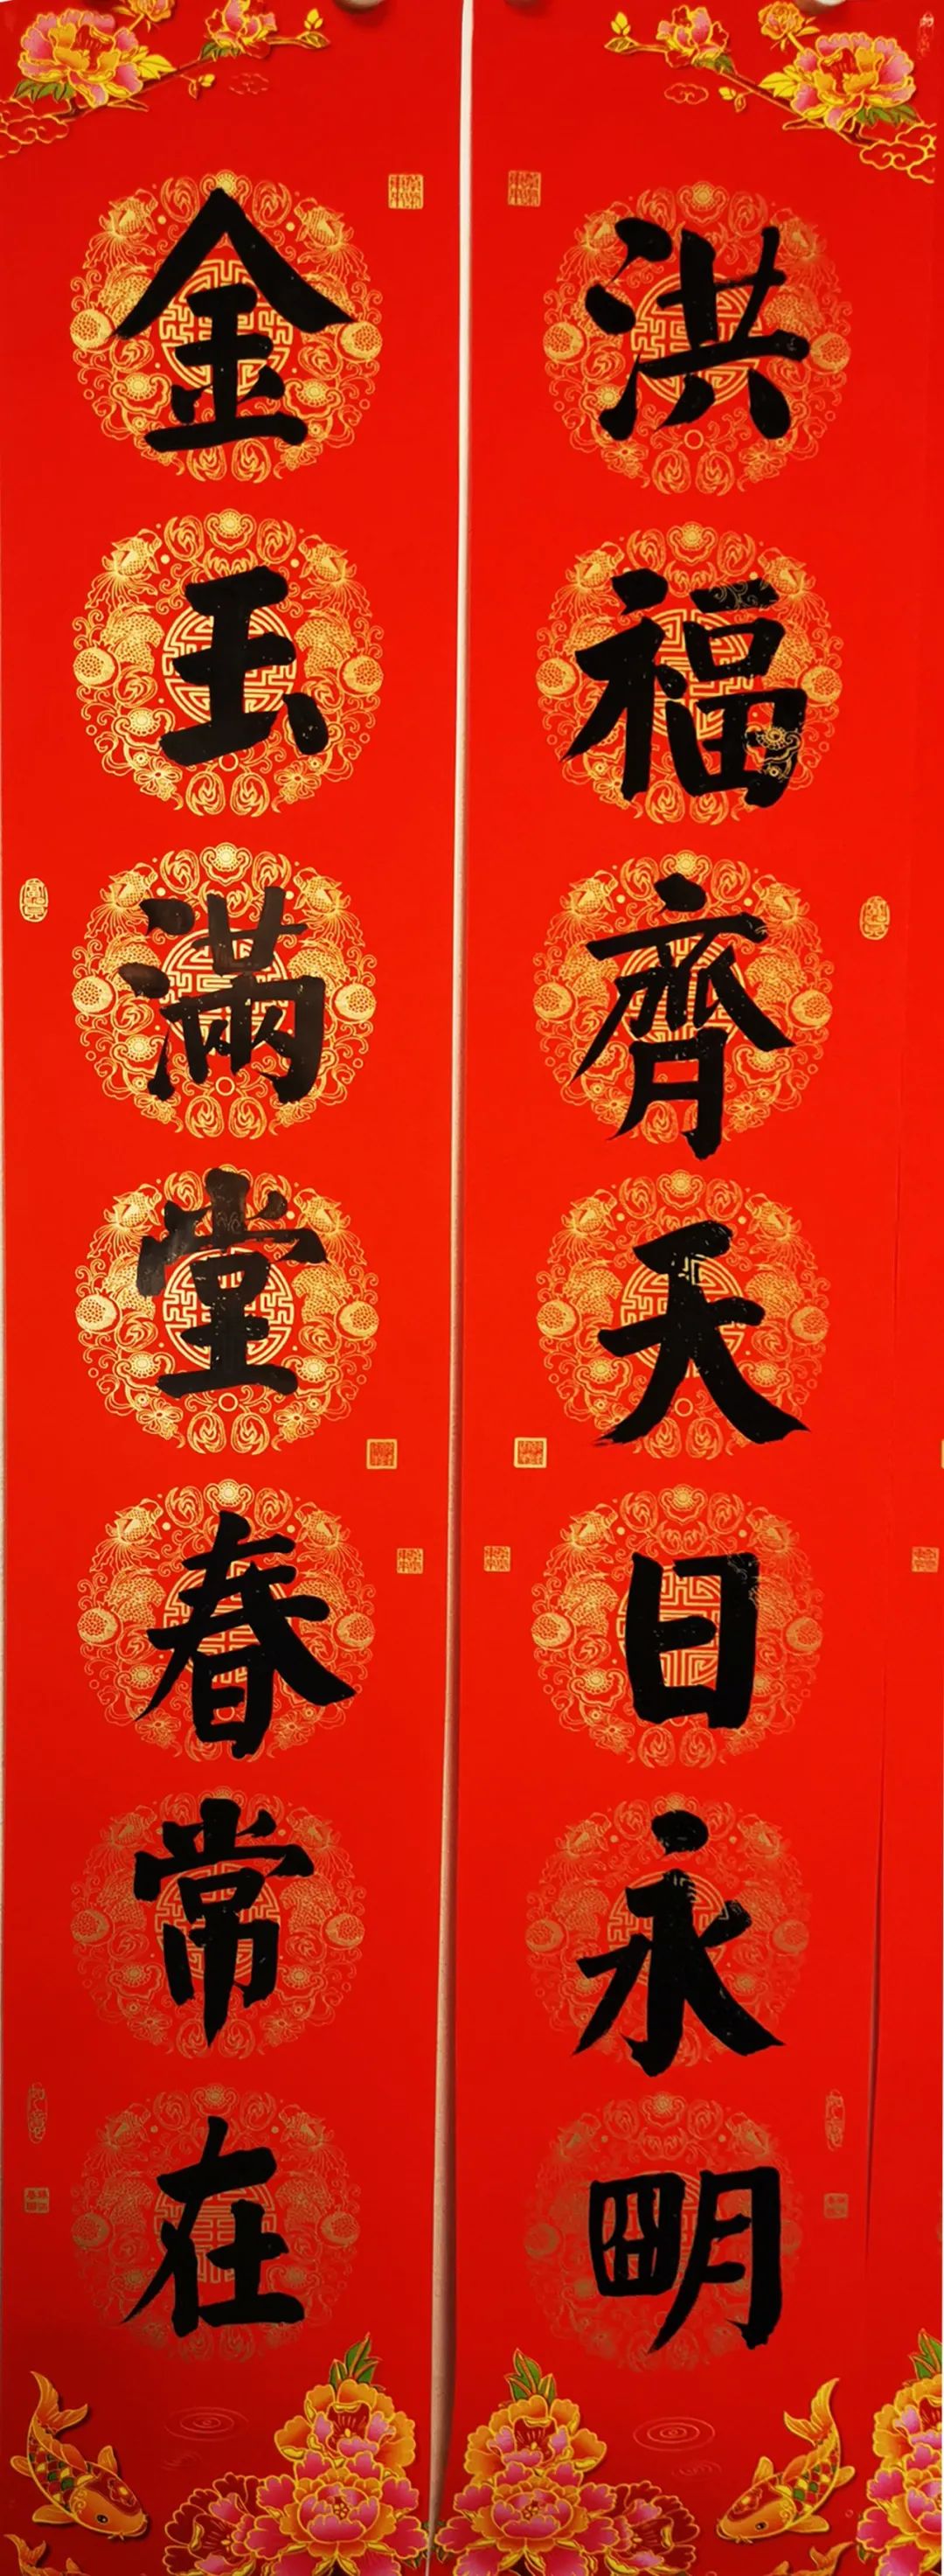 洪福齊天日永朙
金玉滿堂春常在